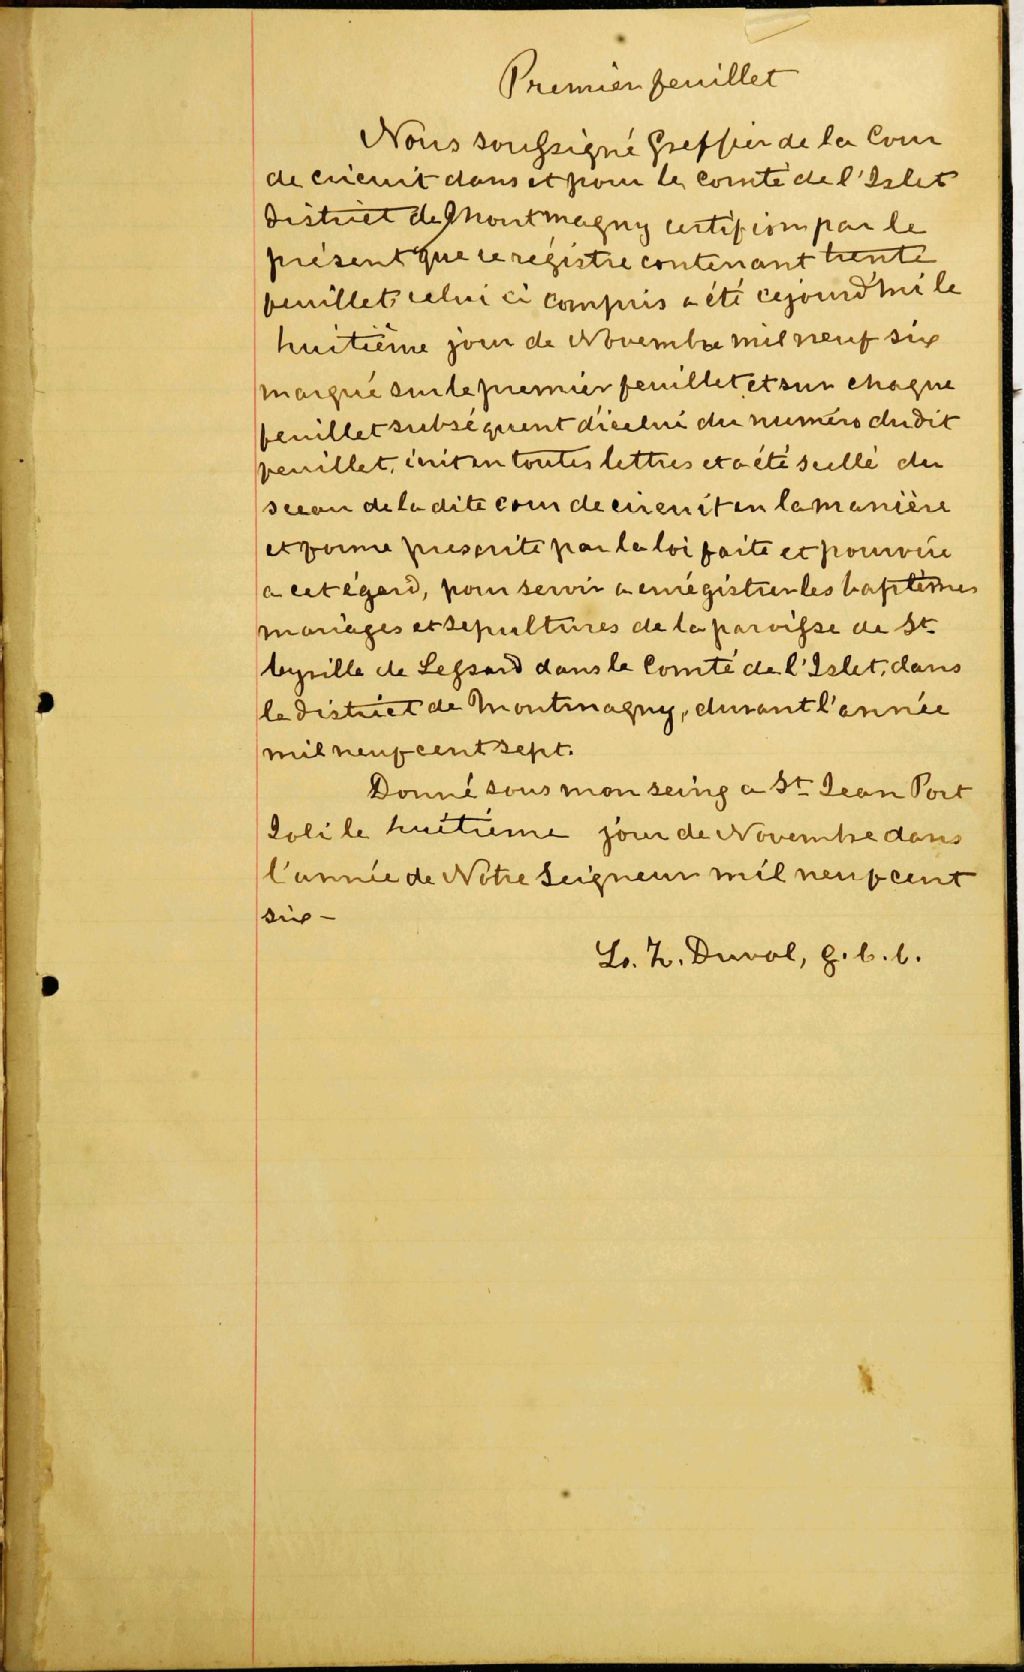 Premier feuillet
Nous soussigné Greffier de la Cour
de circuit dans et pour le comté de l'Islet
District de Montmagny certifion par le
présent que ce régistre contenant trente
feuillets celui ci compris a été cejourd'hui le
huitième jour de Novembre mil neuf six
marqué sur le premier feuillet et sur chaque
feuillet subséquent d'icelui du numéro dudit
feuillet, écrit en toutes lettres et a été scellé du
sceau de la dite cour de circuit en la manière
et forme prescrite par la loi faite et pourvue
a cet égard, pour servir a enrégistrer les baptêmes
mariages et sepultures de la paroisse de St
Cyrille de Lessard dans le Comté de l'Islet, dans
le District de Montmagny, durant l'année
mil neuf cent sept.
Donné sous mon seing a St Jean Port
Joli le huitième jour de Novembre dans
l'année de Notre Seigneur mil neuf cent
six -
Ls. Z. Duval, g. c. c.